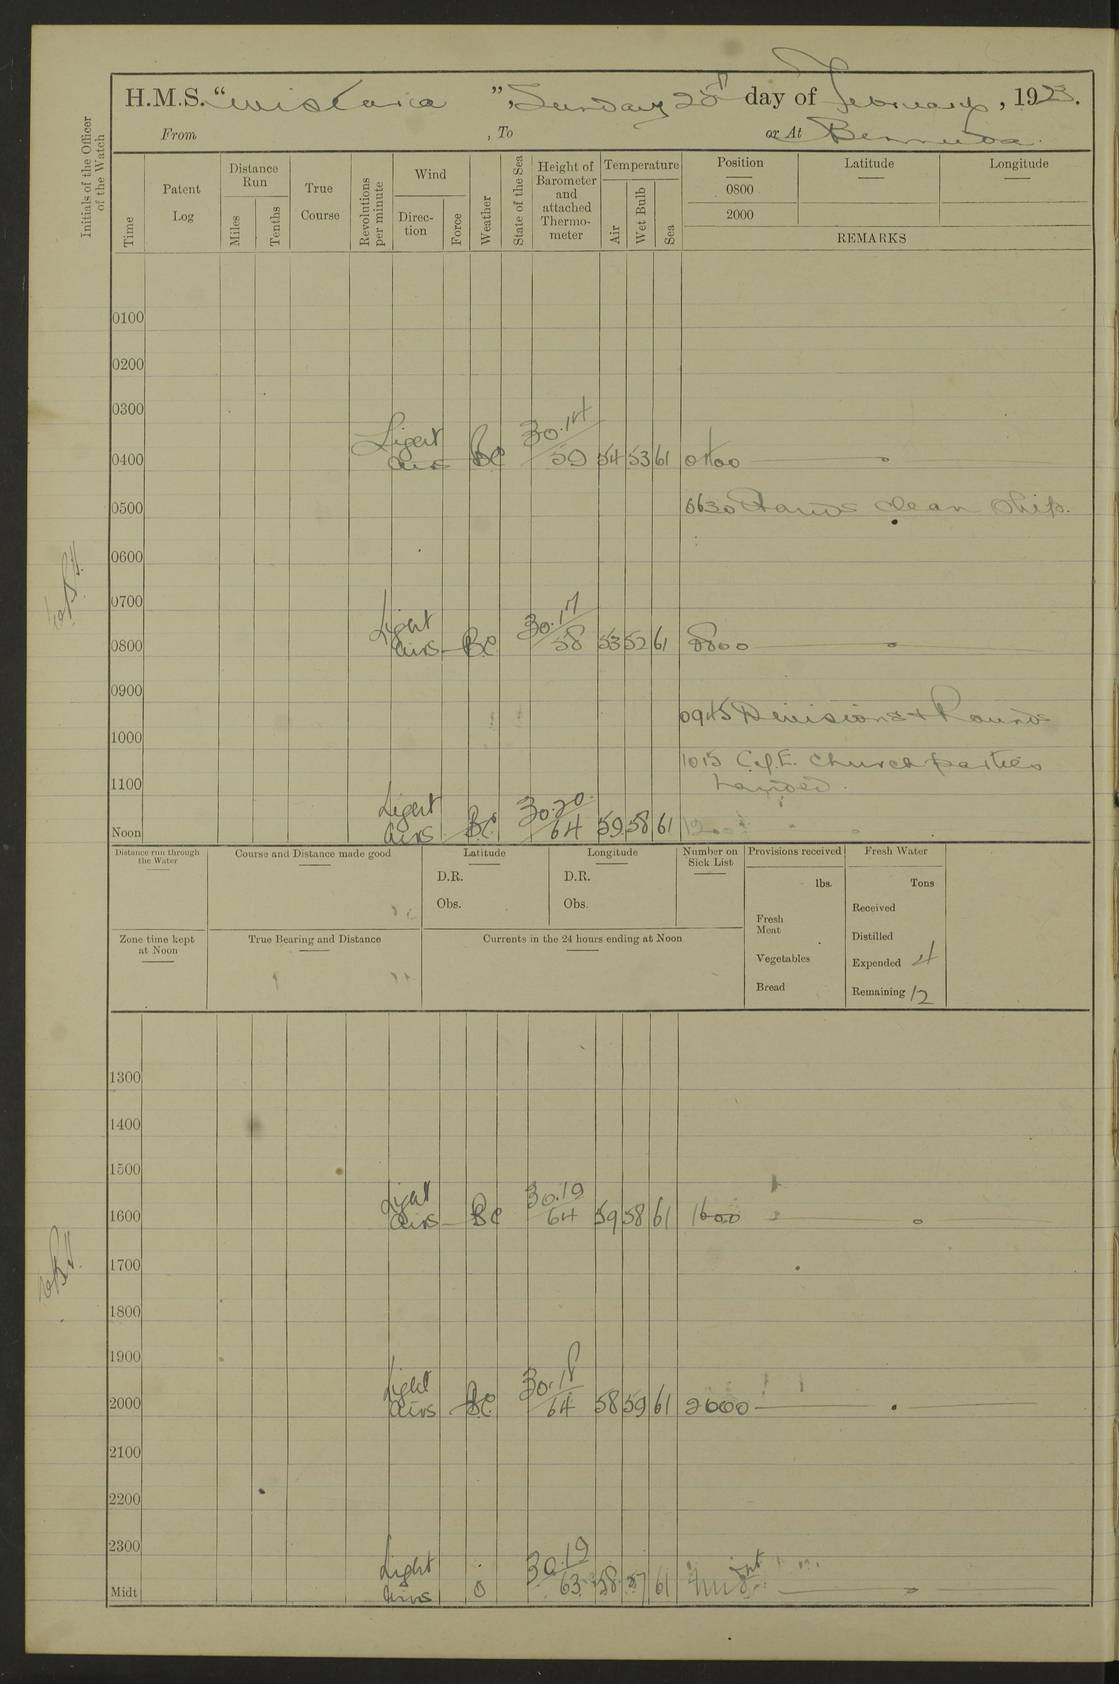 H.M.S. "Wistaria", Sunday day of February, 1923.
From , To or At Bermuda.
Initials of the Officer of the Watch
Time
Patent Log
Distance Run
Miles
Tenths
True Course
Revolutions per minute
Wind
Direc-tion
Force
Weather
State of the Sea
Height of Barometer and attached Thermo-meter
Temperature
Air
Wet Bulb
Sea
Position
0800
2000
Latitude
Longitude
REMARKS
0100
0200
0300
Light 30.14
0400 airs BC 59 54 53 61 0400
0500 0630 Hands clean ship.
0600
0700
Light 30.17
0800 airs BC 58 53 52 61 0800
0900
0945 Divisions + Rounds
1000
1015 C of E. Church parties
1100 landed.
Light 30.20
Noon airs BC 64 59 58 61 1200
Distance run through the Water
Course and Distance made good
Latitude
D.R.
Obs.
Longitude
D.R.
Obs.
Number on Sick List
Provisions received
lbs.
Fresh Meat
Vegetables
Bread
Fresh Water
Tons
Received
Distilled
Expended 4
Remaining 12
Zone time kept at Noon
True Bearing and Distance
Currents in the 24 hours ending at Noon
1300
1400
1500
Light 30.19
1600 airs BC 64 59 58 61 1600
1700
1800
1900
Light 30.18
2000 airs BC 64 58 59 61 2000
2100
2200
2300
Light 30.19
Midt airs O 63 58 57 61